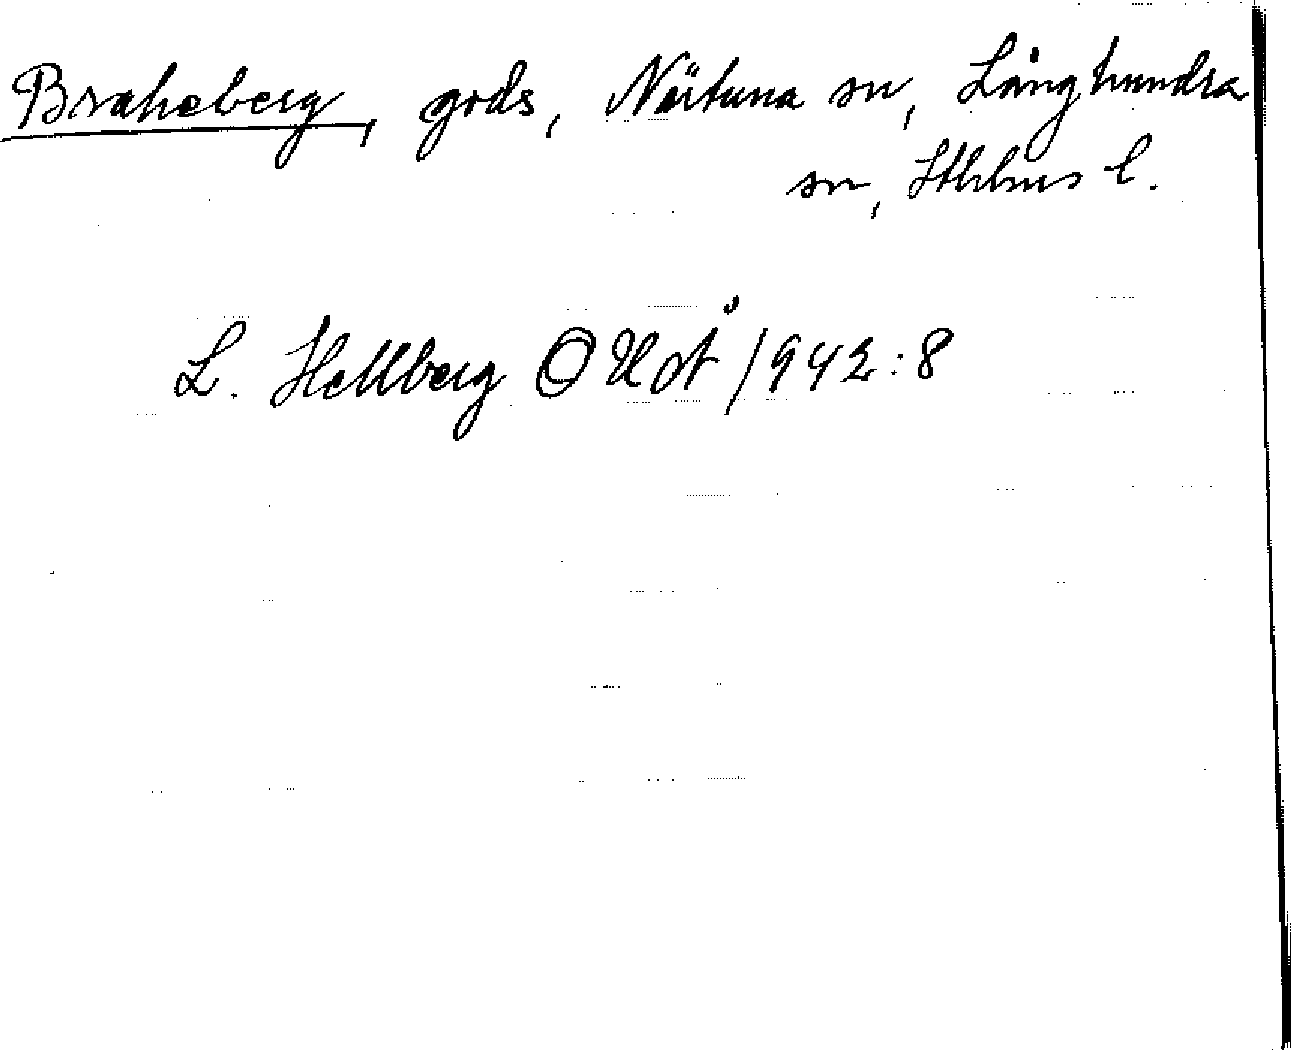 Braheberg, gods, Närtuna sn, Långhundra
sn, Sthlms l.
L. Hellberg OUÅ 1942:8